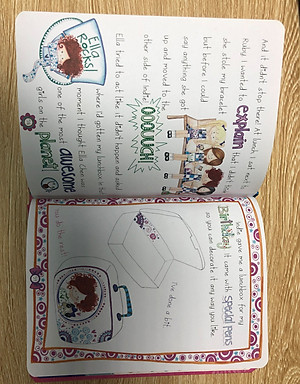 And it didn't stop there! At lunch I sat next to
Ruby. I wanted to explain that I didn't say
she stole my bracelet
but before I could
say anything she got
up and moved to the
other side of Indie.
OOOUCH!
Ella tried to act like it didn't happen and asked
where I'd got my lunchbox
moment I thought Ella Chen was
one of the most awesome
girls on the planet!
Ella
Rocks!
gave me a lunchbox for my
Birthday. It came with special pens
so you can decorate it any way you like.
I've done a bit
You do the rest!